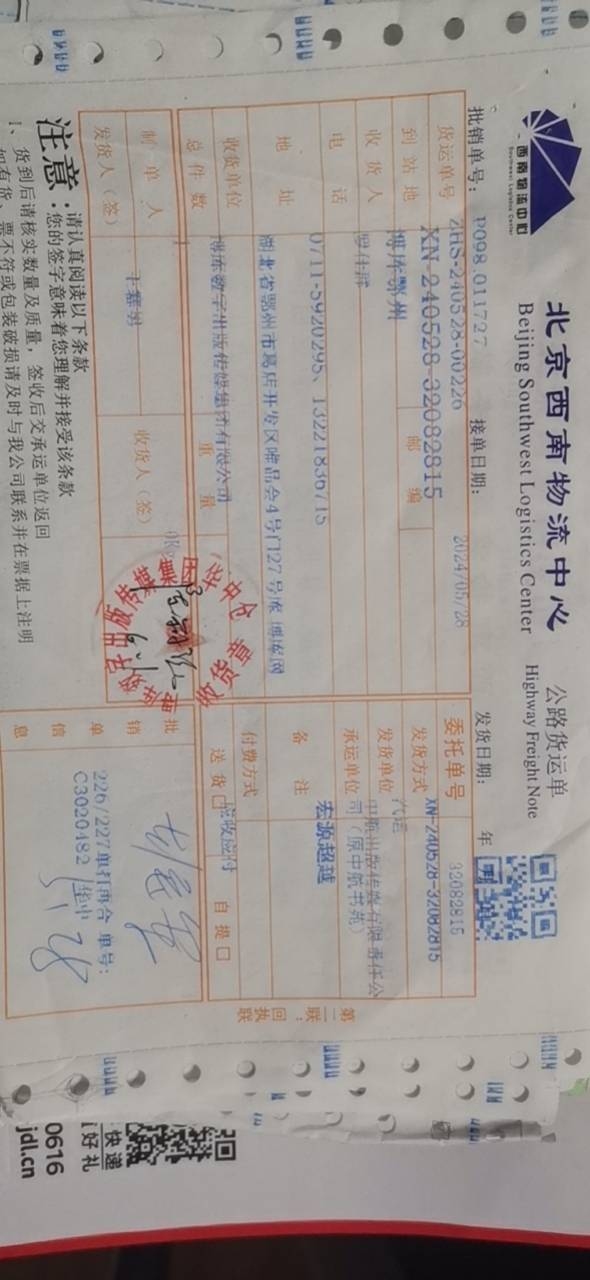 西南物流中心
Southwest Logistics Center
北京西南物流中心 公路货运单
Beijing Southwest Logistics Center Highway Freight Note
批销单号: P098.011727 接单日期: 2024/05/28 发货日期: 年
货运单号 ZHS-240528-00226
XN-240528-32082815
委托单号 32082815
到站地 博库鄂州 邮编
发货方式 XN-240528-32082815
汽运
收货人
发货单位 中航出版传媒有限责任公司(原中航书苑)
电话 0711-5920295、13221836715
承运单位 宏源超越
地址 湖北省鄂州市葛店开发区唯品会4号门27号库 博库网
备注
收货单位 博库数字出版传媒集团有限公司
付费方式 应收应付
总件数 1 重量
送货口 自提口
制单人 收货人(签)
发货人(签)
批销单信息
226/227单打再合 单号:
C3020482 华中
第二联:回执联
华中仓
收货章
注意:
请认真阅读以下条款
您的签字意味着您理解并接受该条款
1、货到后请核实数量及质量,签收后交承运单位返回
如有货、票不符或包装破损请及时与我公司联系并在票据上注明
快递
好礼
0616
jdl.cn